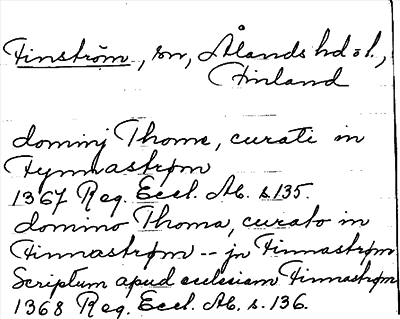 Finström, sn, Ålands hd o l.,
Finland
dominj Thome, curati in
Fynnastrøm
1367 Reg. Eccl. Ab. s 135.
domino Thoma, curato in
Finnastrøm -- jn Finnastrøm
Scriptum apud ecclesiam Finnastrøm
1368 Reg. Eccl. Ab. s. 136.